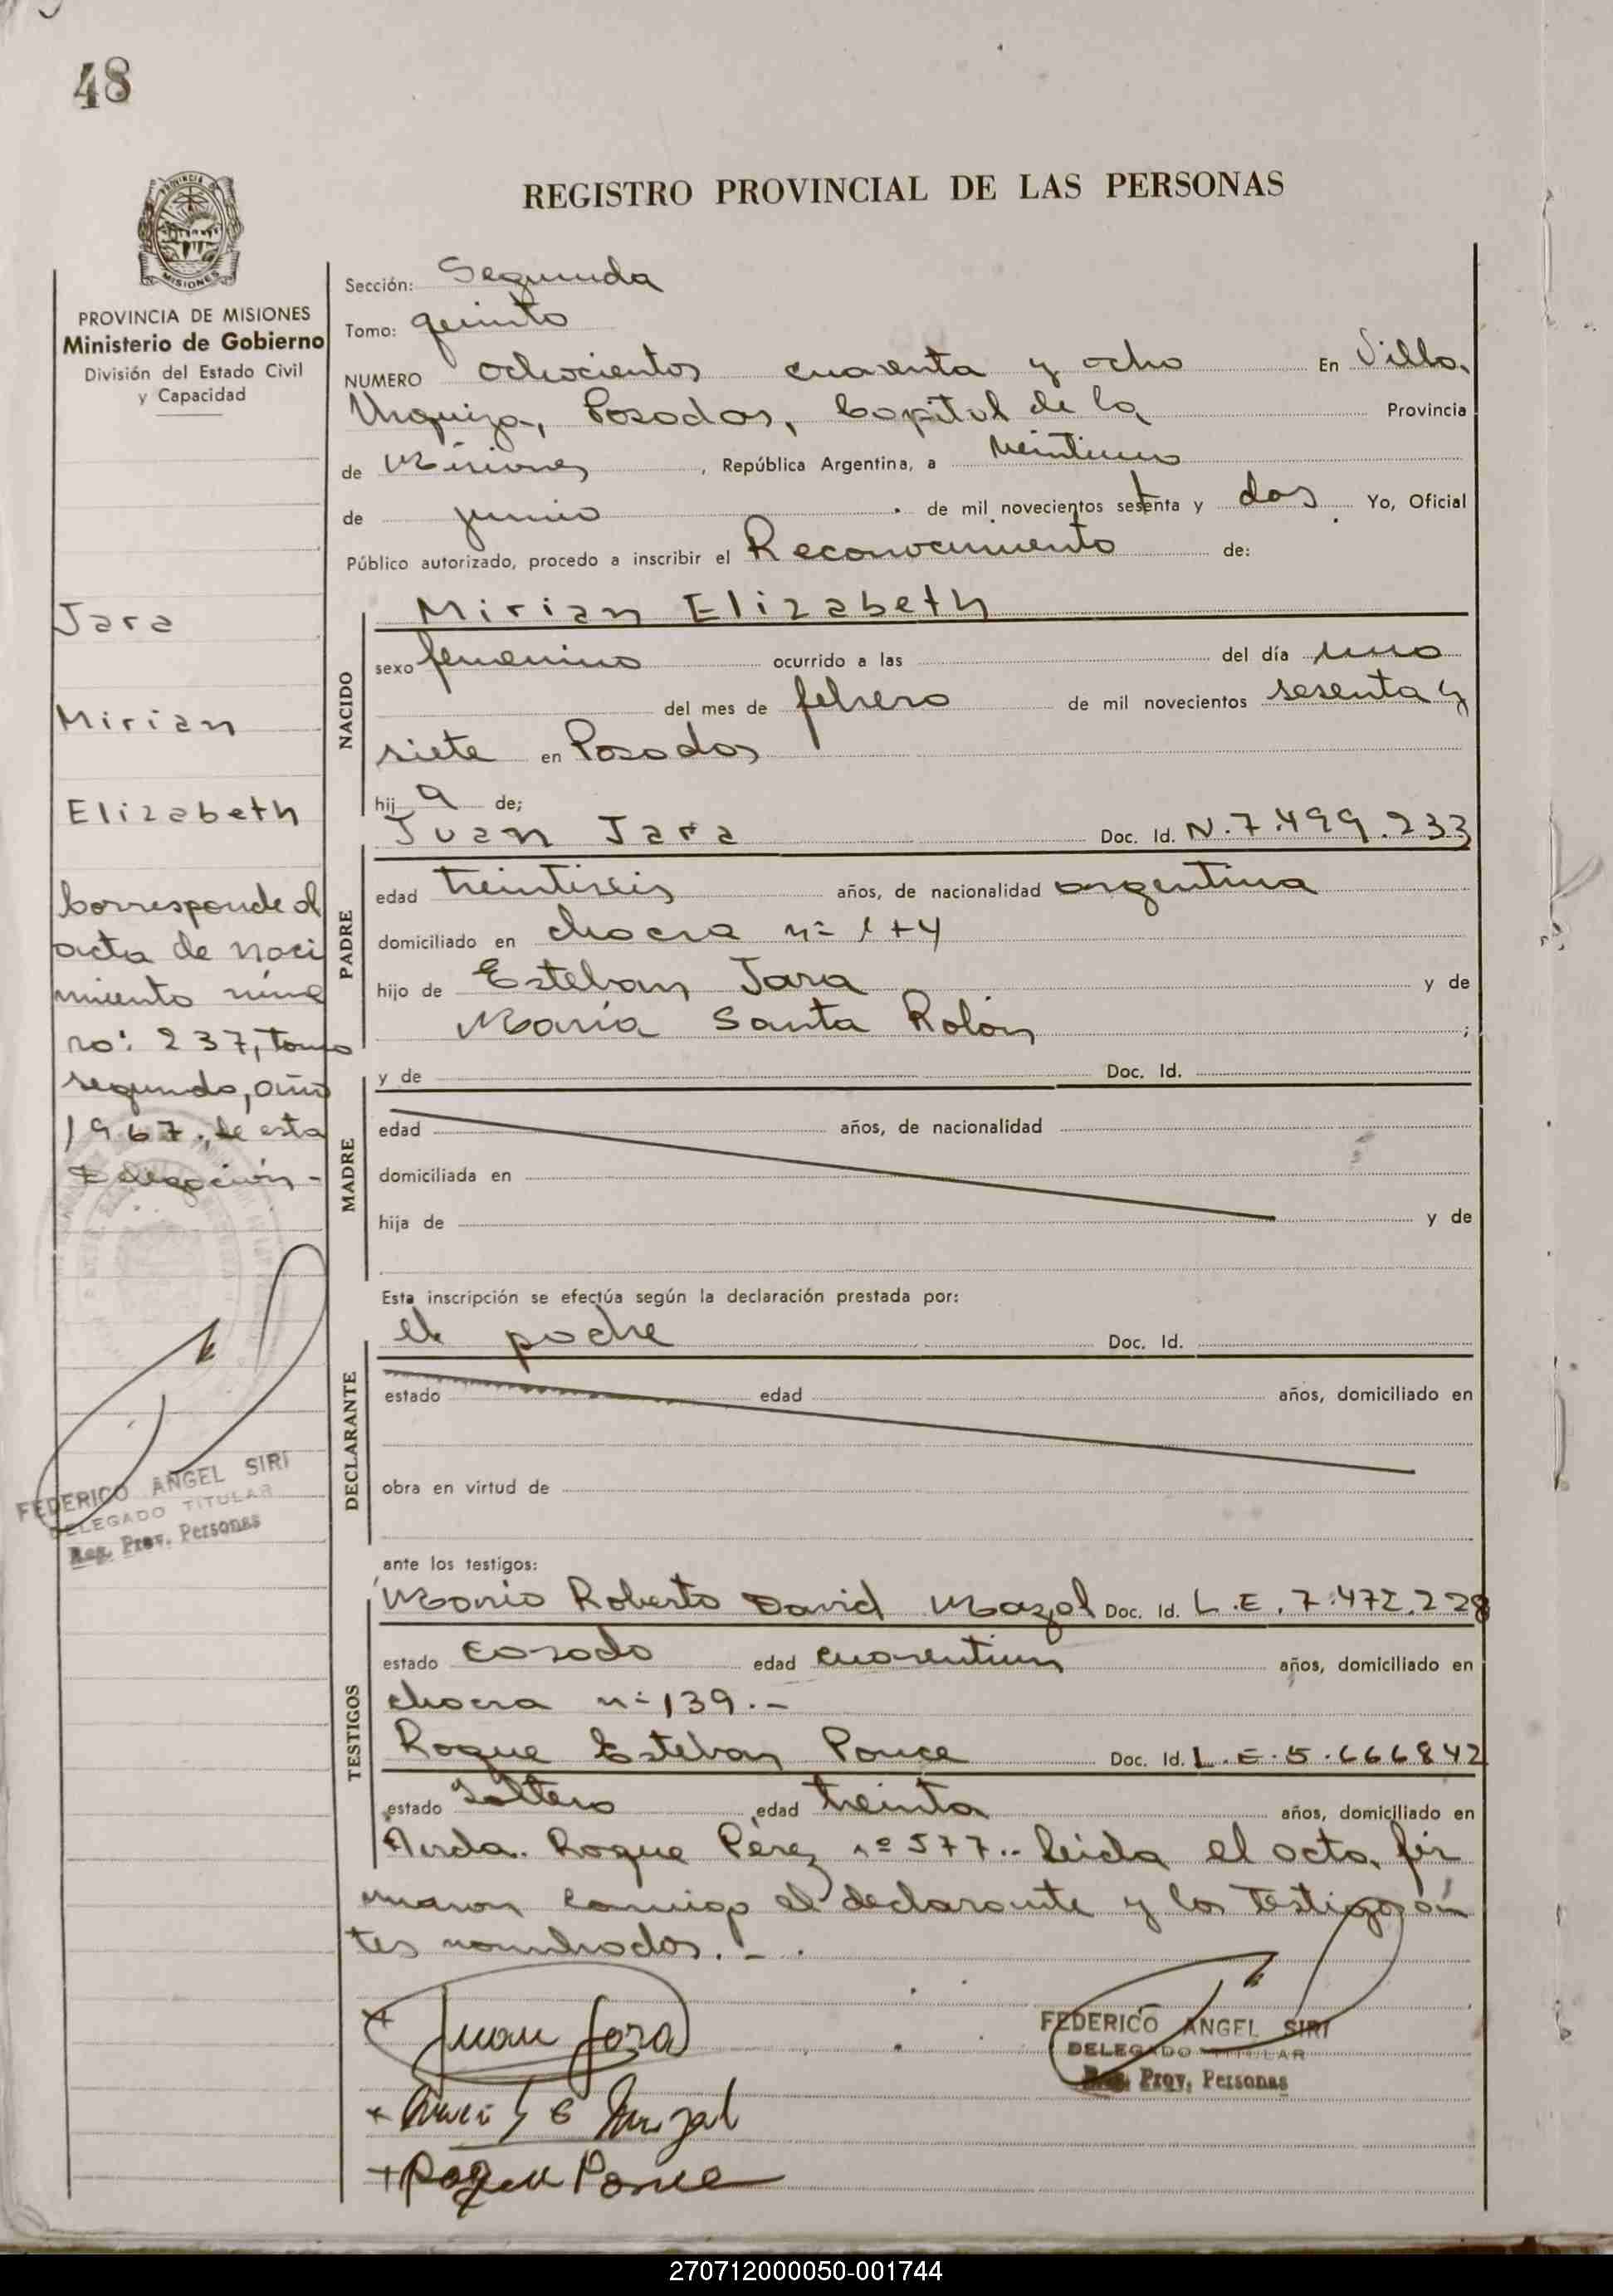 48
REGISTRO PROVINCIAL DE LAS PERSONAS
PROVINCIA DE MISIONES
Ministerio de Gobierno
División del Estado Civil
y Capacidad
Jara
Mirian
Elizabeth
Corresponde al
acta de naci
miento núme
ro: 237, tomo
segundo, año
1967, de esta
Delegación -
FEDERICO ANGEL SIRI
DELEGADO TITULAR
Reg. Prov. Personas
Sección: Segunda
Tomo: quinto
NUMERO ochocientos cuarenta y ocho En Villa
Urquiza, Posadas, Capital de la Provincia
de Misiones, República Argentina, a veintiuno
de junio de mil novecientos setenta y dos Yo, Oficial
Público autorizado, procedo a inscribir el Reconocimiento de:
NACIDO
Mirian Elizabeth
sexo femenino ocurrido a las del día uno
del mes de febrero de mil novecientos sesenta y
siete en Posadas
hij a de;
PADRE
Juan Jara Doc. Id. N. 7.499.233
edad treintiseis años, de nacionalidad argentina
domiciliado en chacra n= 174
hijo de Esteban Jara y de
María Santa Rolón ;
MADRE
y de Doc. Id.
edad años, de nacionalidad
domiciliada en
hija de y de
Esta inscripción se efectúa según la declaración prestada por:
DECLARANTE
el padre Doc. Id.
estado edad años, domiciliado en
obra en virtud de
ante los testigos:
TESTIGOS
Mario Roberto David Mazal Doc. Id. L.E. 7.472.228
estado casado edad cuarentiun años, domiciliado en
chacra n=139.-
Roque Esteban Ponce Doc. Id. L.E.5.666842
estado Soltero edad treinta años, domiciliado en
Avda. Roque Pérez nº 577.- leida el acta, fir
maron conmigo el declarante y los testigos an
tes nombrados. - .
Juan Jara
Roque Ponce
FEDERICO ANGEL SIRI
DELEGADO TITULAR
Reg. Prov. Personas
270712000050-001744